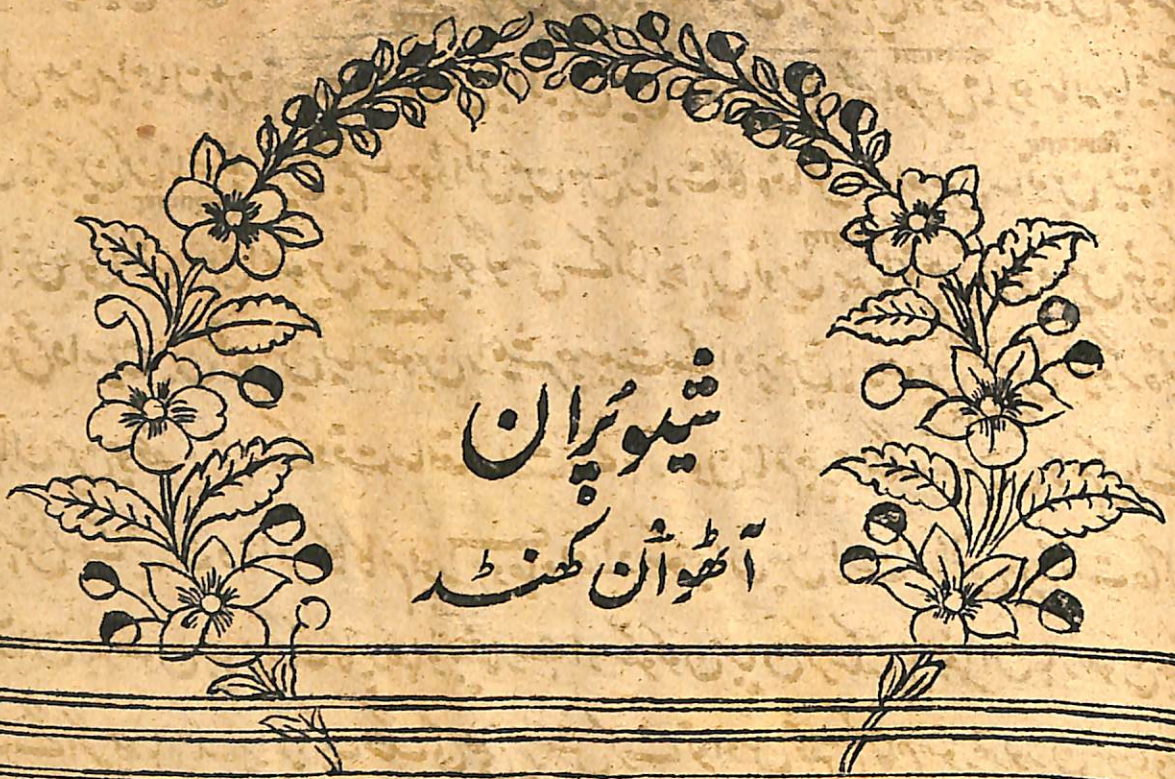 شیو پُران
آٹھواں کھنڈ